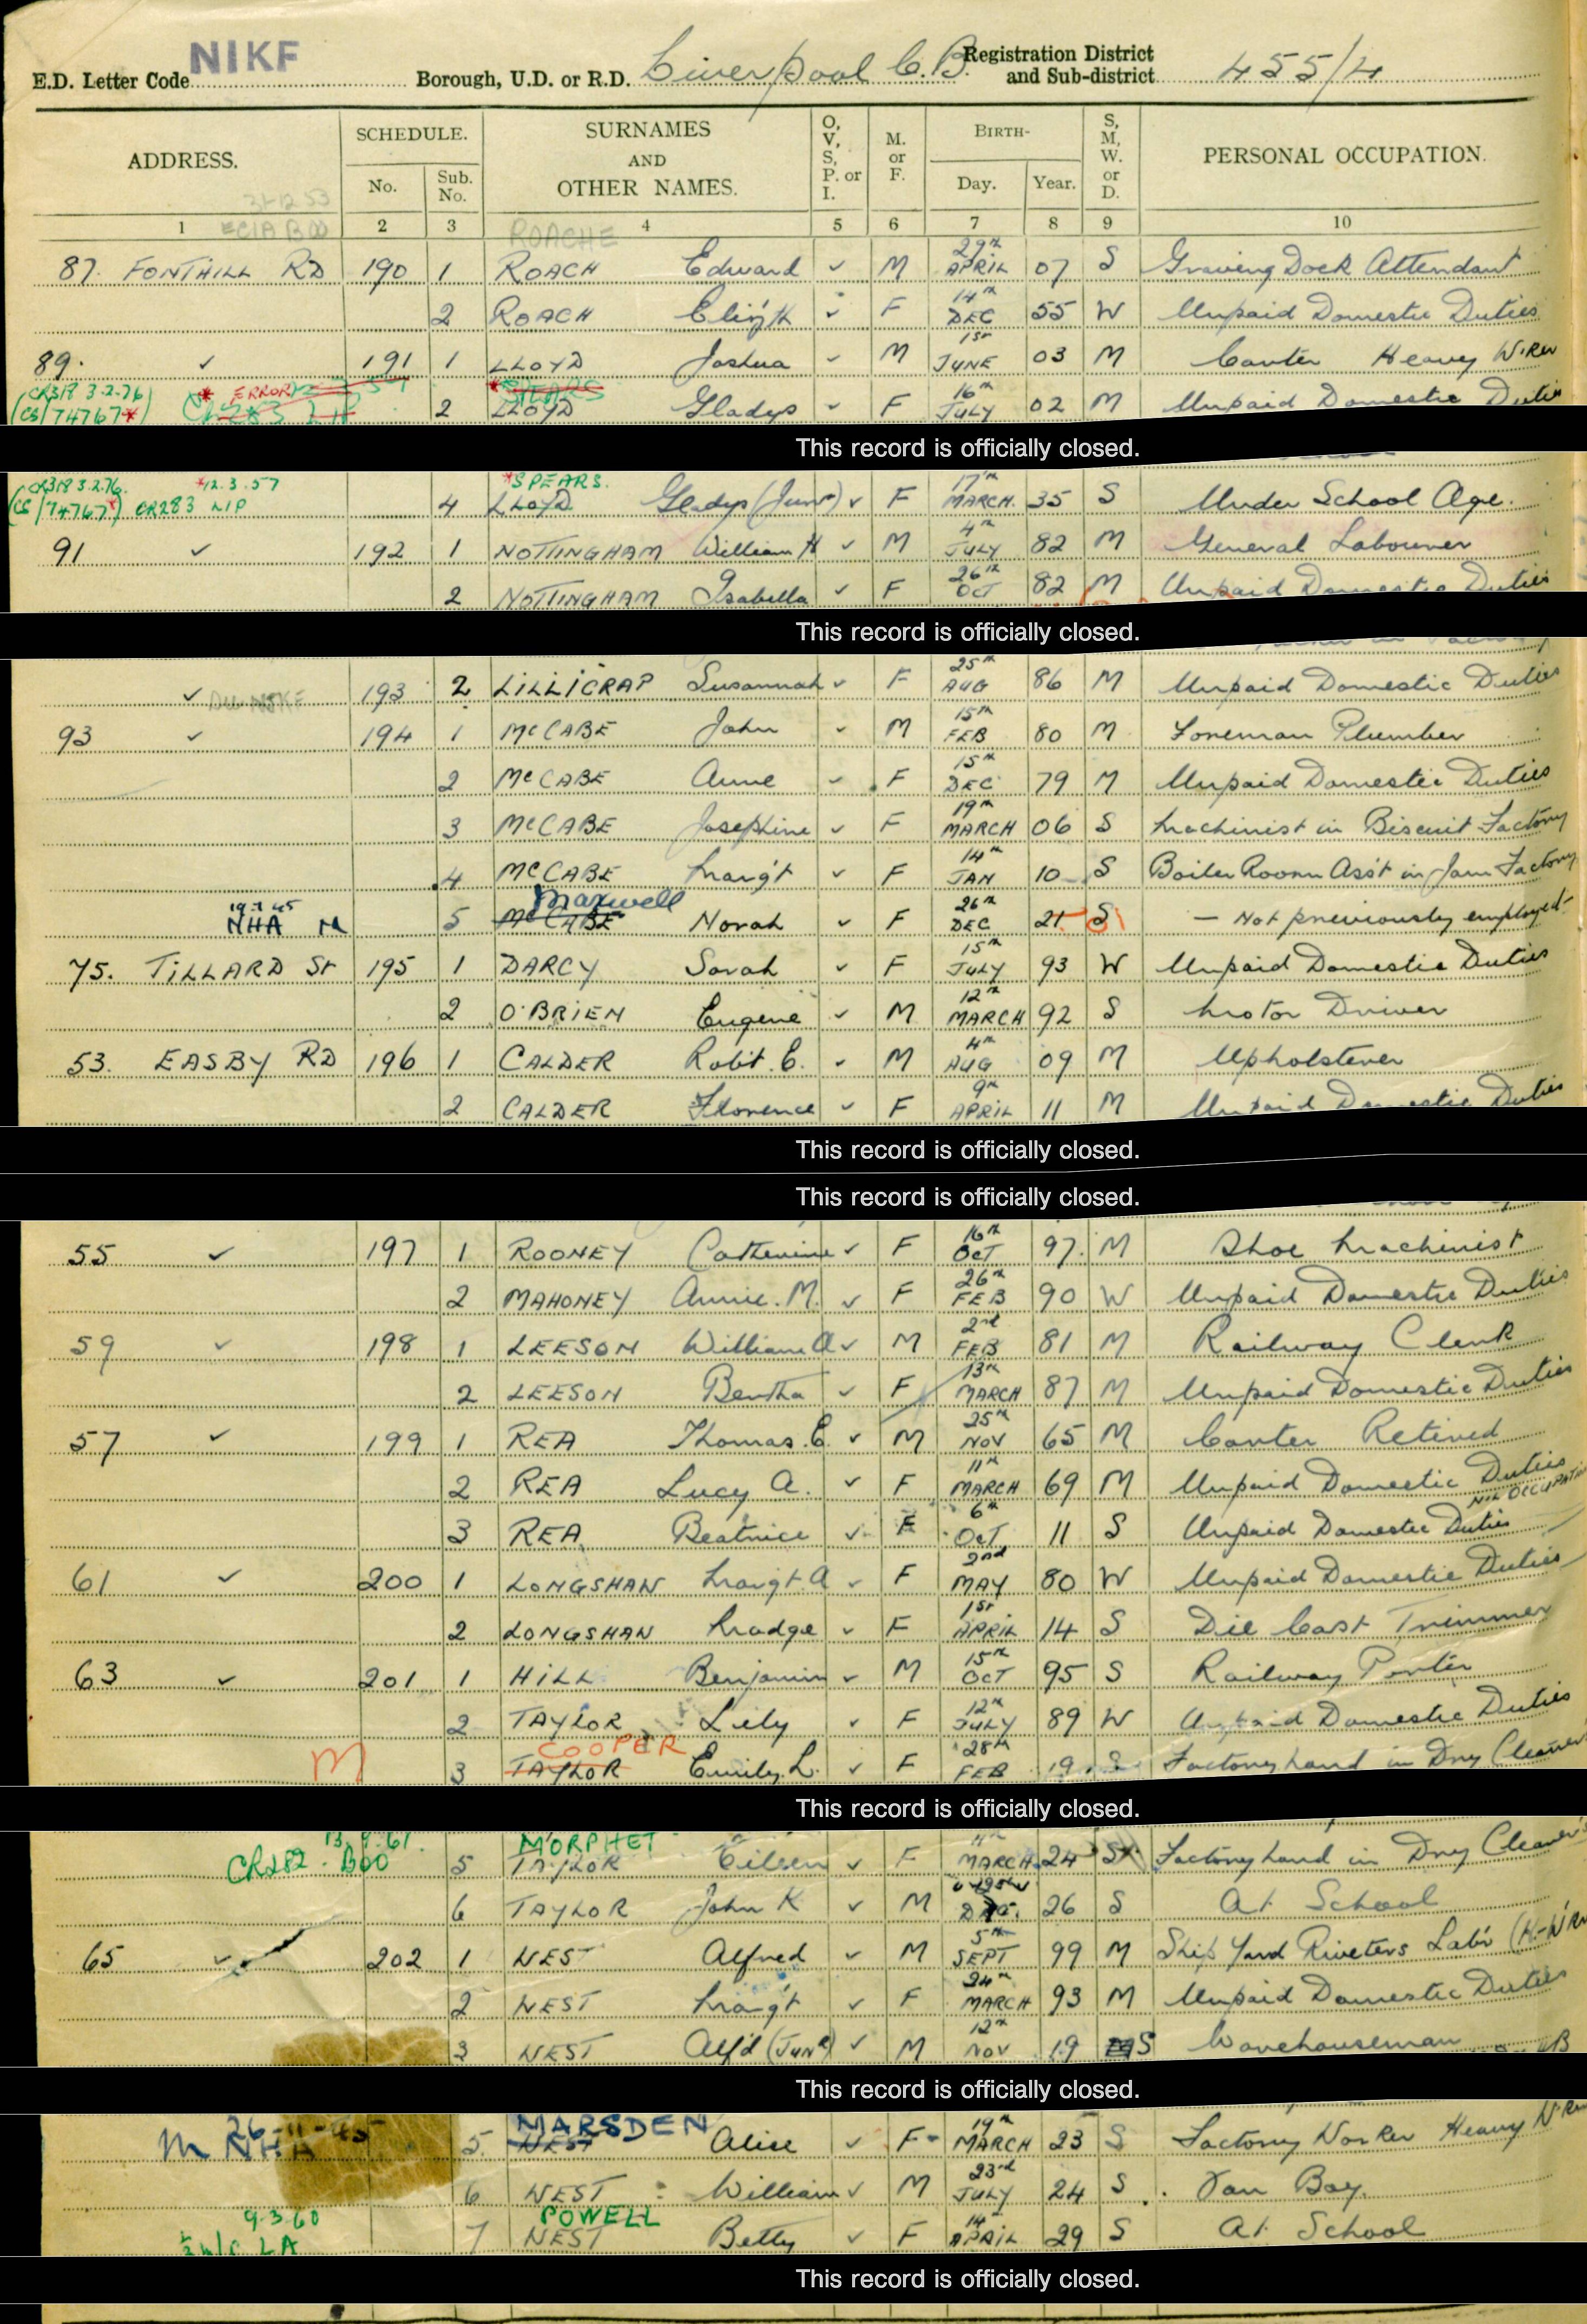 NIKF
E.D. Letter Code Borough, U.D. or R.D. Liverpool C.B. Registration District and Sub-district 455/4
ADDRESS. SCHEDULE. No. Sub. No. SURNAMES AND OTHER NAMES. O, V, S, P. or I. M. or F. BIRTH- Day. Year. S, M, W. or D. PERSONAL OCCUPATION.
1 2 3 4 5 6 7 8 9 10
ROACHE
87. FONTHILL RD 190 1 ROACH Edward ✓ M 29th APRIL 07 S Graving Dock Attendant
2 ROACH Eliz'th ✓ F 14th DEC 55 W Unpaid Domestic Duties
89. ✓ 191 1 LLOYD Joshua ✓ M 1st JUNE 03 M Carter Heavy W.Rkr
CR318 3.2.76 (CS/74767*) * ERROR * SPEARS
2 LLOYD Gladys ✓ F 16th JULY 02 M Unpaid Domestic Duties
This record is officially closed.
CR318 3.2.76. *12.3.57 *SPEARS.
(CS/74767*) CR283 LIP 4 LLOYD Gladys (Junr) ✓ F 17th MARCH 35 S Under School Age.
91 ✓ 192 1 NOTTINGHAM William H ✓ M 4th JULY 82 M General Labourer
2 NOTTINGHAM Isabella ✓ F 26th OCT 82 M Unpaid Domestic Duties
This record is officially closed.
✓ 193 2 LILLICRAP Susannah ✓ F 25th AUG 86 M Unpaid Domestic Duties
93 ✓ 194 1 McCABE John ✓ M 15th FEB 80 M Foreman Plumber
2 McCABE Anne ✓ F 15th DEC 79 M Unpaid Domestic Duties
3 McCABE Josephine ✓ F 19th MARCH 06 S Machinist in Biscuit Factory
4 McCABE Marg't ✓ F 14th JAN 10 S Boiler Room Ass't in Jam Factory
Maxwell
19.7.45 NHA M 5 McCABE Norah ✓ F 26th DEC 21 S — Not previously employed.
75. TILLARD St 195 1 DARCY Sarah ✓ F 15th JULY 93 W Unpaid Domestic Duties
2 O'BRIEN Eugene ✓ M 12th MARCH 92 S Motor Driver
53. EASBY RD 196 1 CALDER Robt. E. ✓ M 4th AUG 09 M Upholsterer
2 CALDER Florence ✓ F 9th APRIL 11 M Unpaid Domestic Duties
This record is officially closed.
This record is officially closed.
55 ✓ 197 1 ROONEY Catherine ✓ F 16th OCT 97. M Shoe Machinist
2 MAHONEY Annie. M. ✓ F 26th FEB 90 W Unpaid Domestic Duties
59 ✓ 198 1 LEESON William A ✓ M 2nd FEB 81 M Railway Clerk
2 LEESON Bertha ✓ F 13th MARCH 87 M Unpaid Domestic Duties
57 ✓ 199 1 REA Thomas. E. ✓ M 25th NOV 65 M Carter Retired
2 REA Lucy A. ✓ F 11th MARCH 69 M Unpaid Domestic Duties
NIL OCCUPATION
3 REA Beatrice ✓ F 6th OCT 11 S Unpaid Domestic Duties
61 ✓ 200 1 LONGSHAN Margt. A ✓ F 2nd MAY 80 W Unpaid Domestic Duties
2 LONGSHAN Madge ✓ F 1st APRIL 14 S Die Cast Trimmer
63 ✓ 201 1 HILL Benjamin ✓ M 15th OCT 95 S Railway Porter
2 TAYLOR Lily ✓ F 12th JULY 89 W Unpaid Domestic Duties
COOPER
M 3 TAYLOR Emily. L. ✓ F 28th FEB 19 S Factory hand in Dry Cleaner
This record is officially closed.
13.9.61. MORPHET
CR282 BOO 5 TAYLOR Eileen ✓ F 11th MARCH 24 S Factory hand in Dry Cleaner's
6 TAYLOR John K ✓ M DEC. 26 S At School
65 ✓ 202 1 WEST Alfred ✓ M 5th SEPT 99 M Ship Yard Riveters Lab'r (H-W'Rk
2 WEST Marg't ✓ F 24th MARCH 93 M Unpaid Domestic Duties
3 WEST Alf'd (Junr) ✓ M 12th NOV 19 S Warehouseman
This record is officially closed.
26-11-45 MARSDEN
M NHA 5. WEST Alice ✓ F 19th MARCH 23 S Factory Worker Heavy W'Rk
6 WEST William ✓ M 23rd JULY 24 S Van Boy.
9.3.60 POWELL
LA 7 WEST Betty ✓ F 14th APRIL 29 S At School
This record is officially closed.